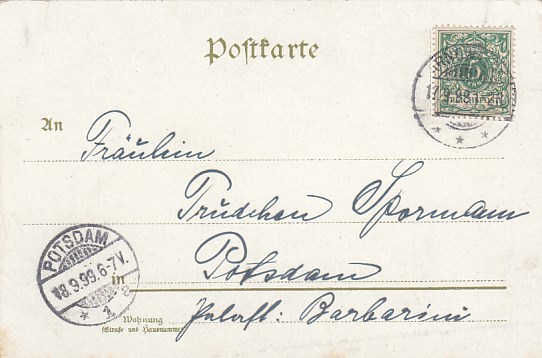 Postkarte
5
REICHSPOST
17.9.99
An
Fräulein
Trudchen Spormann
Potsdam
POTSDAM
18.9.99.6-7V.
* 1 a
in
Palast: Barbarini
Wohnung
(Straße und Hausnummer)